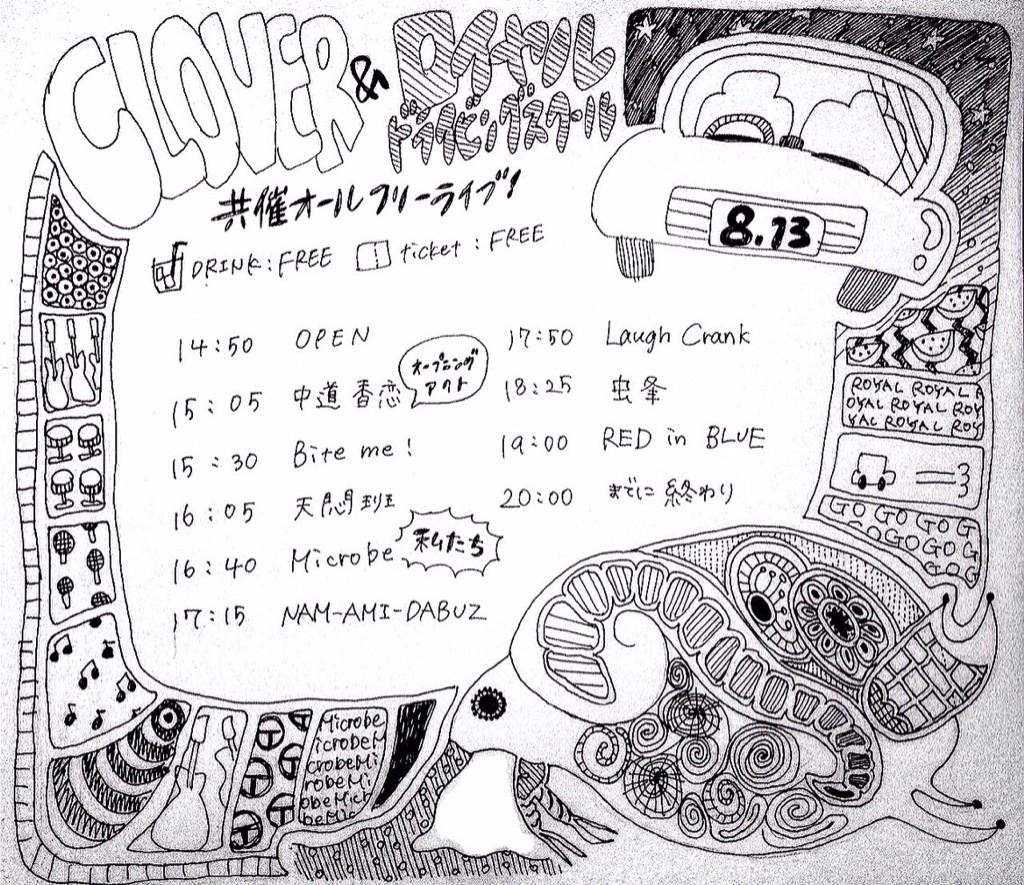 CLOVER & ロイヤル
ドライビングスクール
共催オールフリーライブ!
DRINK:FREE ticket:FREE
8.13
14:50 OPEN
15:05 中道香恋 オープニングアクト
15:30 Bite me!
16:05 天悶班
16:40 Microbe 私たち
17:15 NAM-AMI-DABUZ
17:50 Laugh Crank
18:25 虫峯
19:00 RED in BLUE
20:00 までに終わり
ROYAL ROYAL R
OYAL ROYAL ROY
YAL ROYAL ROY
GO GO GO G
GOGOGO
Microbe
icrobeM
crobeMi
robeMic
obeMicr
beMi